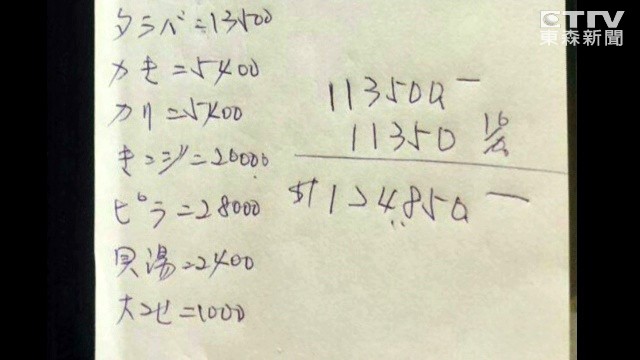 ETTV
東森新聞
タラバ=13500
カモ=5400
カリ=5400
キンジ=20000
ピラ=28000
貝湯=2400
大コセ=1000
113500-
11350 10%
$124850-